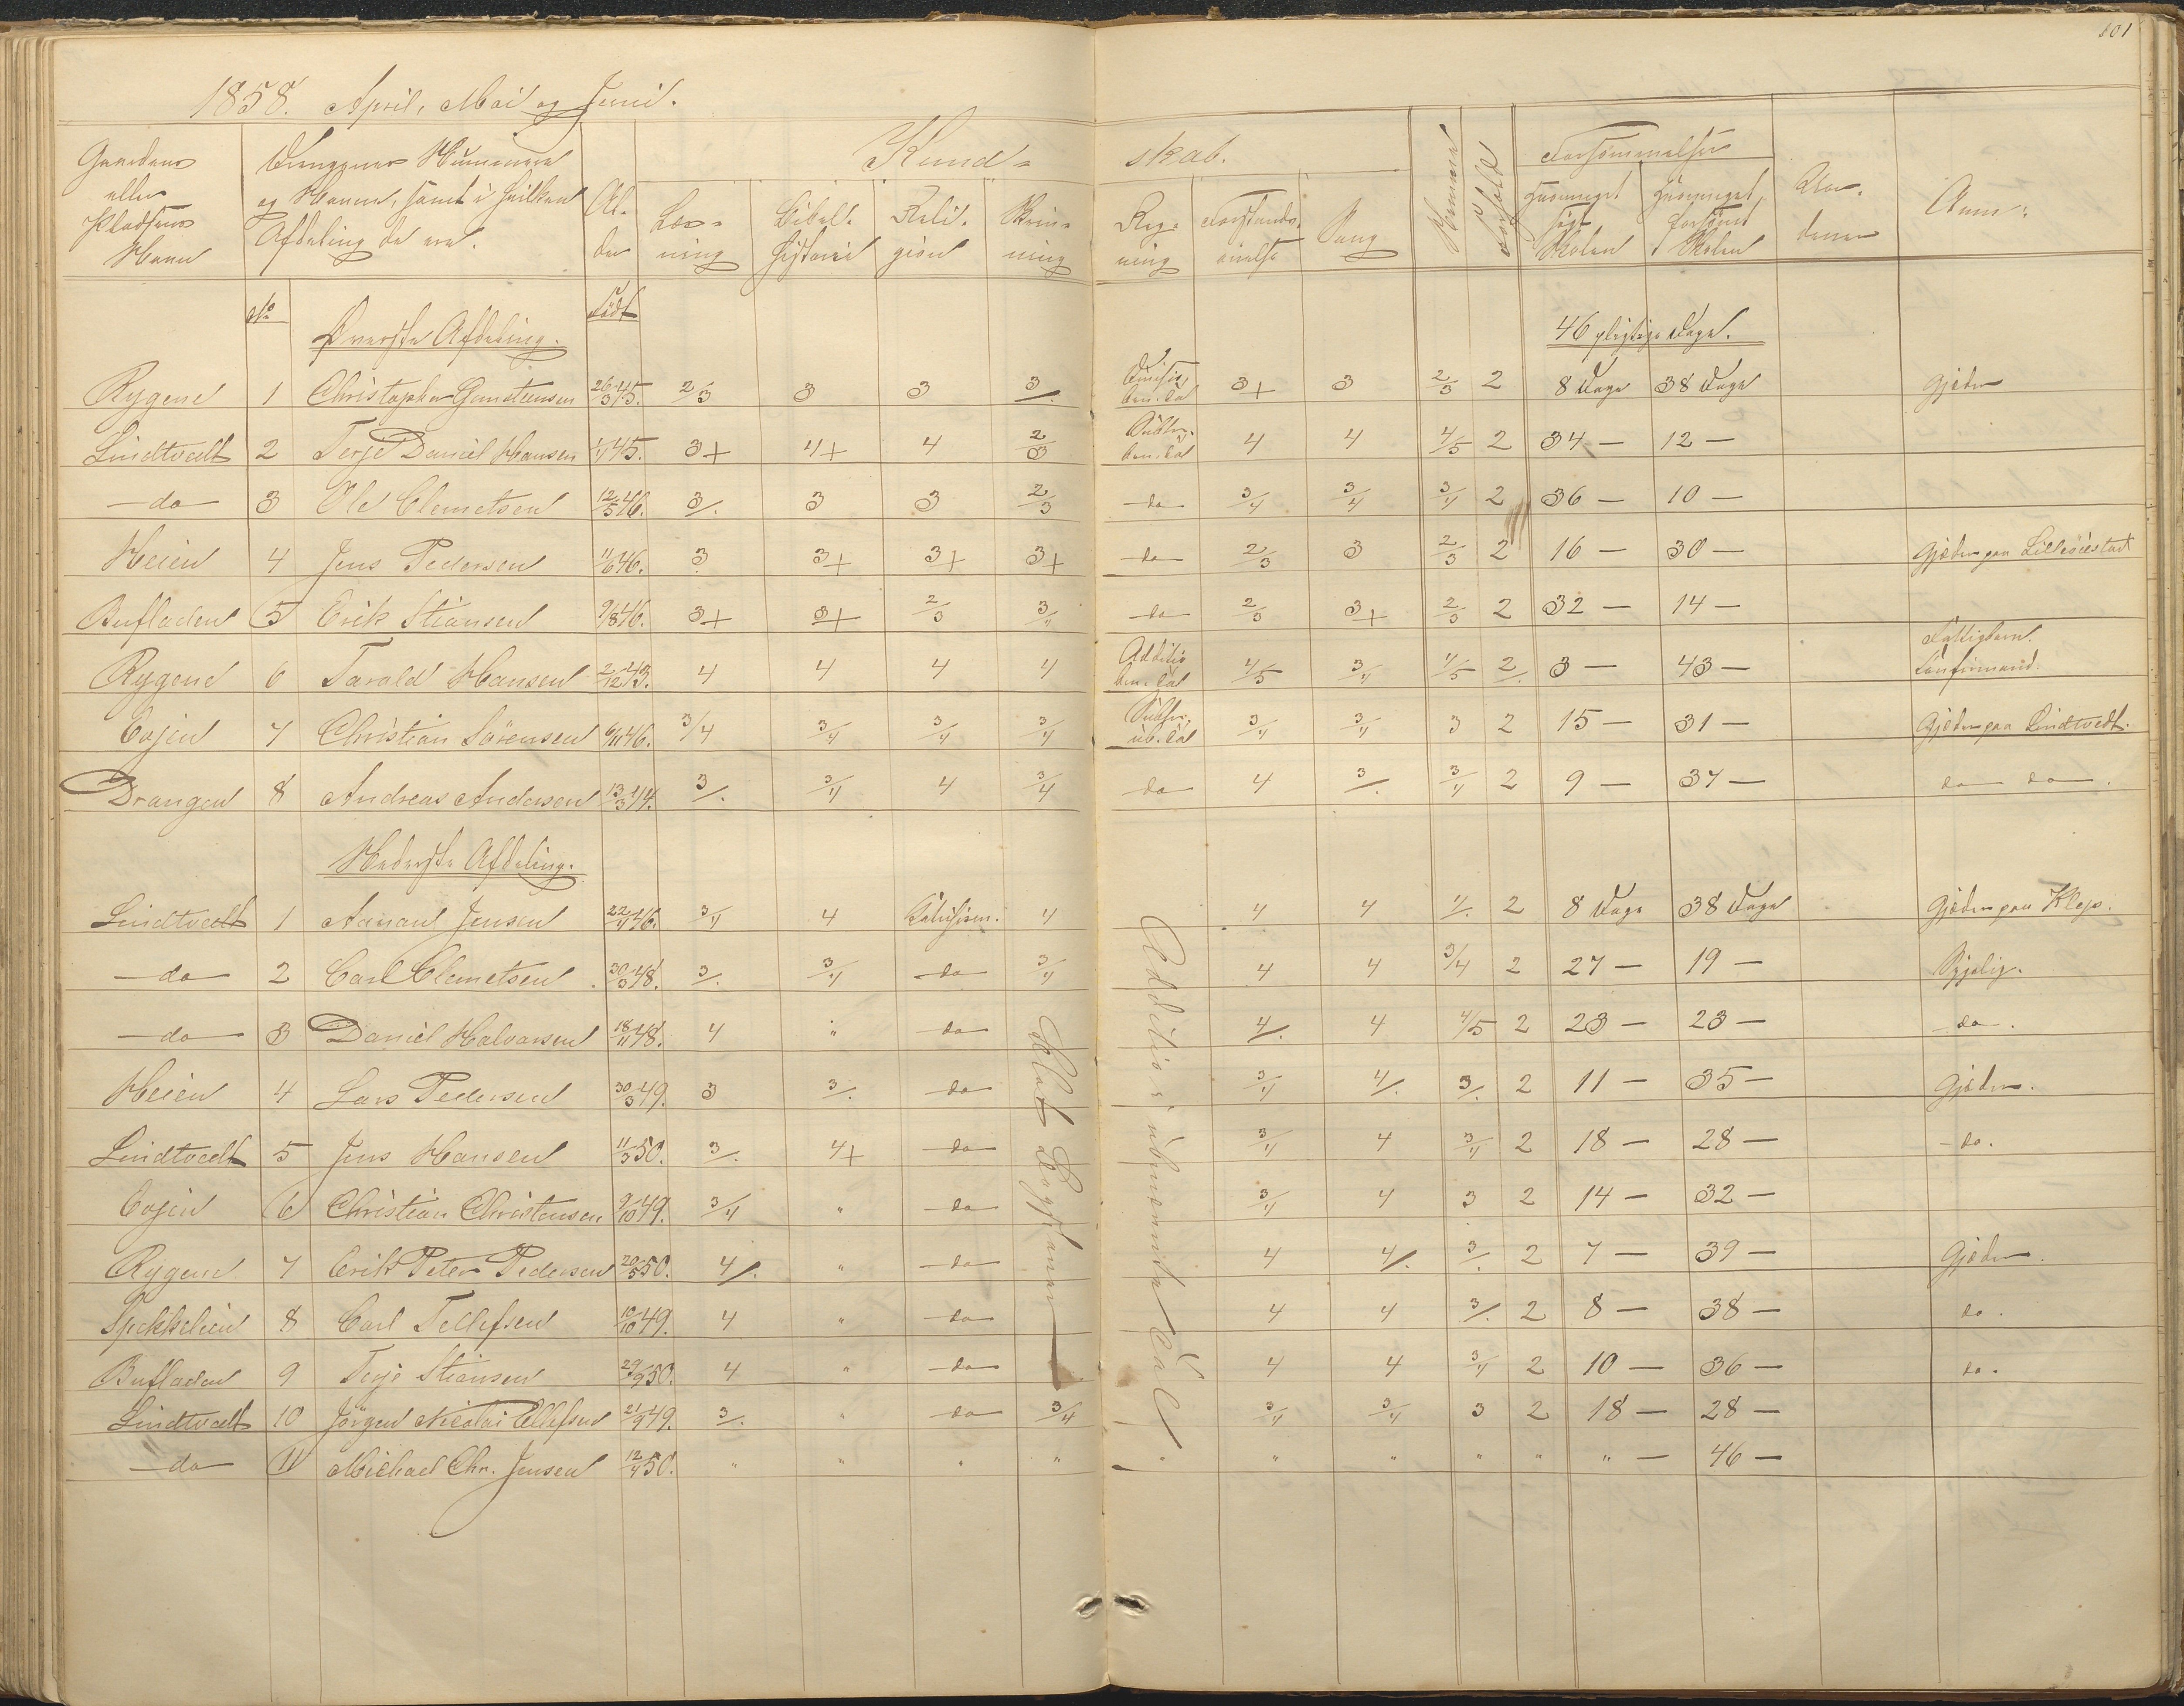 101
1858. April, Mai og Juni.
Gaardens eller Pladsens Navn | Drengenes Nummere og Navne, samt i hvilken Afdeling de ere. | Alder | Kundskab. | Forsømmelser | Anm:
Læsning | Bibelhistorie | Religion | Skrivning | Regning | Forstandsøvelse | Sang | Nemme | Forhold | hvormeget søgt Skolen | hvormeget forsømt Skolen
No | Øverste Afdeling. | Født | 46 pligtige Dage.
Rygene 1 Christopher Gunstensen 26/3 45. 2/3 3 3 3/. Divisio ben. Tal 3+ 3 2/3 2 8 Dage 38 Dage Gjæter
Lindtvedt 2 Terje Daniel Hansen 1/4 45. 3+ 4+ 4 2/3 Subtr. ben. Tal 4 4 4/5 2 34 — 12 —
— do — 3 Ole Clemetsen 12/5 46. 3/. 3 3 2/3 — do — 3/4 3/4 3/4 2 36 — 10 —
Heien 4 Jens Pedersen 11/6 46. 3 3+ 3+ 3+ — do — 2/3 3 2/3 2 16 — 30 — Gjæter paa Lilleøiestad
Bufladen 5 Erik Stiansen 9/8 46. 3+ 3+ 2/3 3/4 do — 2/3 3+ 2/3 2 32 — 14 —
Rygene 6 Tarald Hansen 2/12 43. 4 4 4 4 Additio ben. Tal 4/5 3/4 4/5 2/. 3 — 43 — Fattigbarn. Confirmand.
Bojen 7 Christian Sörensen 6/11 46. 3/4 3/4 3/4 3/4 Subtr. ub. Tal 3/4 3/4 3 2 15 — 31 — Gjæter paa Lindtvedt.
Drangen 8 Andreas Andersen 13/3 44. 3/. 3/4 4 3/4 do 4 3/. 3/4 2 9 — 37 — do do
Nederste Afdeling.
Lindtvedt 1 Aanaul Jensen 22/4 46. 3/4 4 4 4 4 4/. 2 8 Dage 38 Dage Gjæter paa Klep.
— do — 2 Carl Clemetsen 30/3 48. 3/. 3/4 do 3/4 4 4 3/4 2 27 — 19 — Sygelig.
— do — 3 Daniel Halvorsen 18/11 48. 4 " do 4/. 4 4/5 2 23 — 23 — do.
Heien 4 Lars Pedersen 30/3 49. 3 3/. do 3/4 4/. 3/. 2 11 — 35 — Gjæter.
Lindtvedt 5 Jens Hansen 11/3 50. 3/. 4+ do 3/4 4 3/4 2 18 — 28 — do.
Bojen 6 Christian Christensen 9/10 49. 3/4 " do 3/4 4 3 2 14 — 32 —
Rygene 7 Erik Peter Pedersen 20/5 50. 4/. " do 4 4/. 3/. 2 7 — 39 — Gjæter.
Spekkeleien 8 Carl Tellefsen 10/10 49. 4 " do 4 4 3/. 2 8 — 38 — do.
Bufladen 9 Terje Stiansen 29/9 50. 4 " do 4 4 3/4 2 10 — 36 — do.
Lindtvedt 10 Jörgen Nicolai Ellefsen 21/9 49. 3/. " do 3/4 3/4 3/4 3 2 18 — 28 —
— do 11 Michael Chr. Jensen 12/4 50. " " " " " " " " " — 46 —
Slet Bogstaver
Additio i ubenævnte Tal.